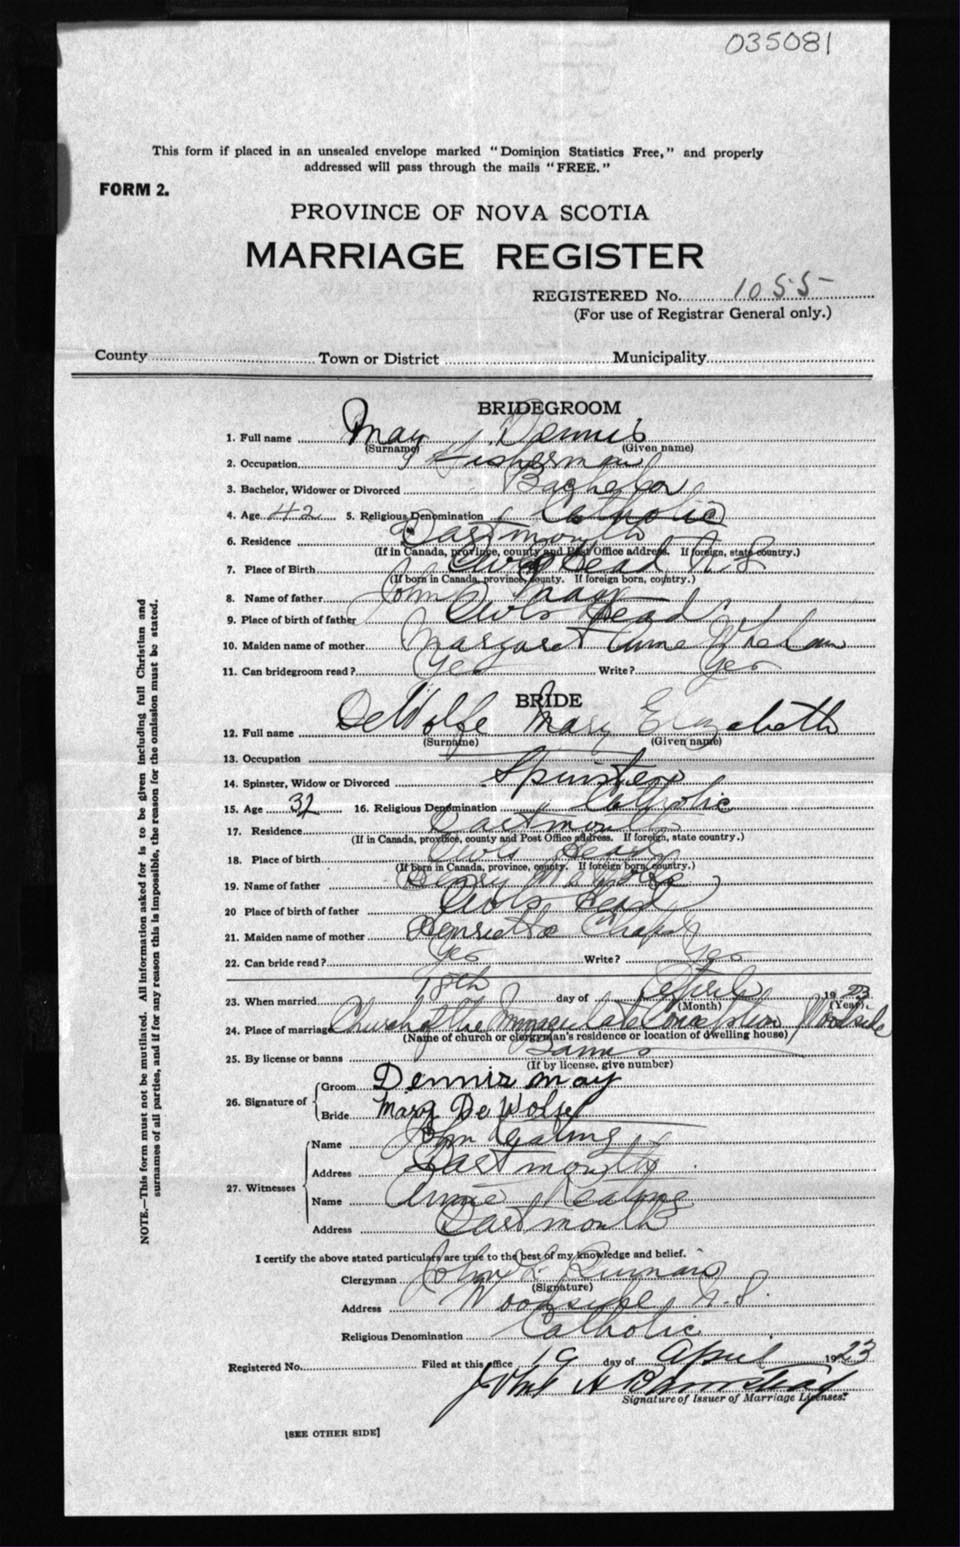 035081
This form if placed in an unsealed envelope marked "Dominion Statistics Free," and properly
addressed will pass through the mails "FREE."
FORM 2.
PROVINCE OF NOVA SCOTIA
MARRIAGE REGISTER
REGISTERED No. 1055
(For use of Registrar General only.)
County Town or District Municipality
BRIDEGROOM
1. Full name May Dennis
(Surname) (Given name)
2. Occupation Fisherman
3. Bachelor, Widower or Divorced Bachelor
4. Age 42 5. Religious Denomination Catholic
6. Residence Dartmouth
(If in Canada, province, county and Post Office address. If foreign, state country.)
7. Place of Birth Owls Head N.S
(If born in Canada, province, county. If foreign born, country.)
8. Name of father John May
9. Place of birth of father Owls Head
10. Maiden name of mother Margaret Anne
11. Can bridegroom read? Yes Write? Yes
BRIDE
12. Full name DeWolfe Mary Elizabeth
(Surname) (Given name)
13. Occupation
14. Spinster, Widow or Divorced Spinster
15. Age 32 16. Religious Denomination Catholic
17. Residence Dartmouth
(If in Canada, province, county and Post Office address. If foreign, state country.)
18. Place of birth Owls Head
(If born in Canada, province, county. If foreign born, country.)
19. Name of father Henry
20 Place of birth of father Owls Head
21. Maiden name of mother Henrietta
22. Can bride read? Yes Write? Yes
23. When married 18th day of April 1923
(Month) (Year)
24. Place of marriage Church of the Immaculate Conception Woodside
(Name of church or clergyman's residence or location of dwelling house)
25. By license or banns Banns
(If by license, give number)
26. Signature of
Groom Dennis may
Bride Mary De Wolfe
27. Witnesses
Name John
Address Dartmouth
Name Annie
Address Dartmouth
I certify the above stated particulars are true to the best of my knowledge and belief.
Clergyman John
(Signature)
Address Woodside N.S.
Religious Denomination Catholic
Registered No. Filed at this office 19 day of April 1923
John A
Signature of Issuer of Marriage Licenses.
[SEE OTHER SIDE]
NOTE.—This form must not be mutilated. All information asked for is to be given including full Christian and
surnames of all parties, and if for any reason this is impossible, the reason for the omission must be stated.